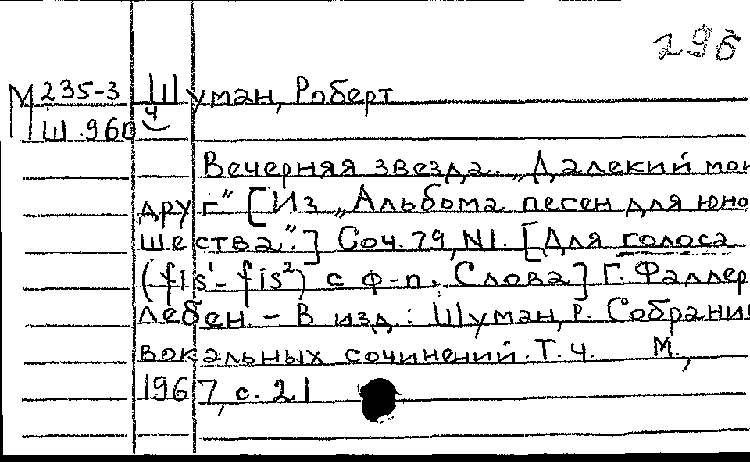 296
М 235-3 Шуман, Роберт
Ш.960 4
Вечерняя звезда. „Далекий мой
друг" [Из „Альбома песен для юно
шества".] Соч. 79, N1. [Для голоса
(fis¹-fis²) с ф-п. Слова] Г. Фаллер
лебен. - В изд.: Шуман, Р. Собрани
вокальных сочинений. Т. 4. М.,
1967, с. 21